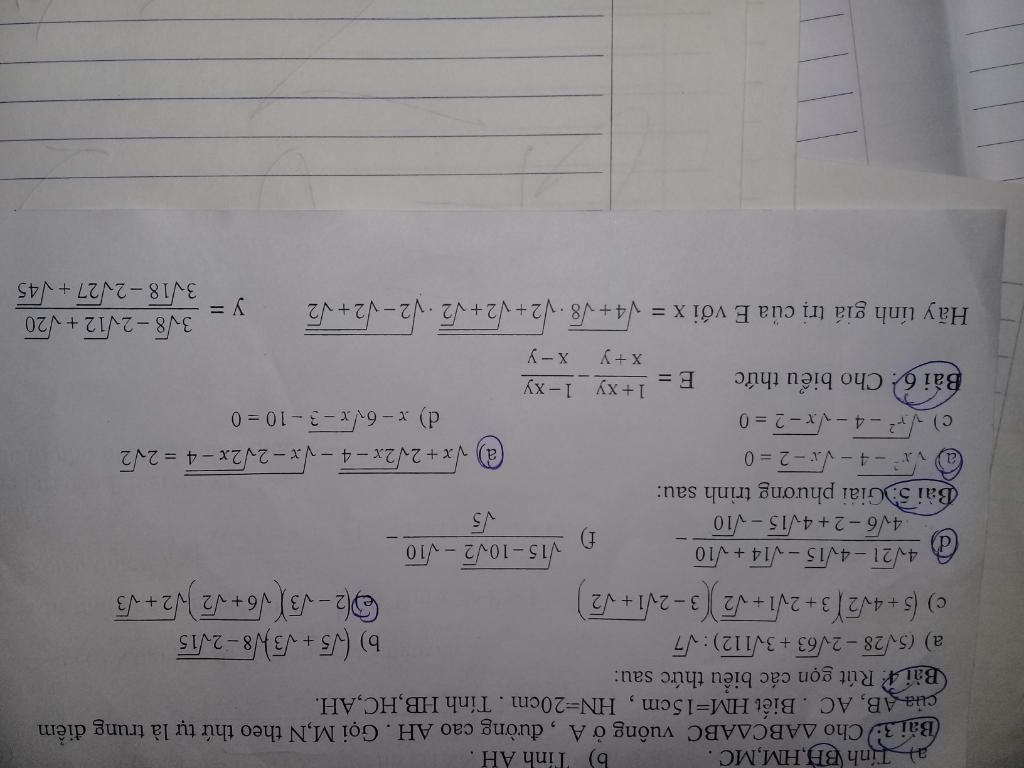 a) Tính BH,HM,MC . b) Tính AH
Bài 3: Cho ΔABCΔABC vuông ở A , đường cao AH . Gọi M,N theo thứ tự là trung điểm
của AB, AC . Biết HM=15cm , HN=20cm . Tính HB,HC,AH.
Bài 4: Rút gọn các biểu thức sau:
a) (5√28 − 2√63 + 3√112) : √7 b) (√5 + √3)√(8 − 2√15)
c) (5 + 4√2)(3 + 2√(1 + √2))(3 − 2√(1 + √2)) e) (2 − √3)(√6 + √2)√(2 + √3)
d) (4√21 − 4√15 − √14 + √10)/(4√6 − 2 + 4√15 − √10) − f) √(15 − 10√2 − √10)/√5 −
Bài 5: Giải phương trình sau:
a) √(x² − 4) − √(x − 2) = 0 a) √(x + 2√(2x − 4)) − √(x − 2√(2x − 4)) = 2√2
c) √(x² − 4) − √(x − 2) = 0 d) x − 6√(x − 3) − 10 = 0
Bài 6: Cho biểu thức E = (1 + xy)/(x + y) − (1 − xy)/(x − y)
Hãy tính giá trị của E với x = √(4 + √8) · √(2 + √(2 + √2)) · √(2 − √(2 + √2)) y = (3√8 − 2√12 + √20)/(3√18 − 2√27 + √45)